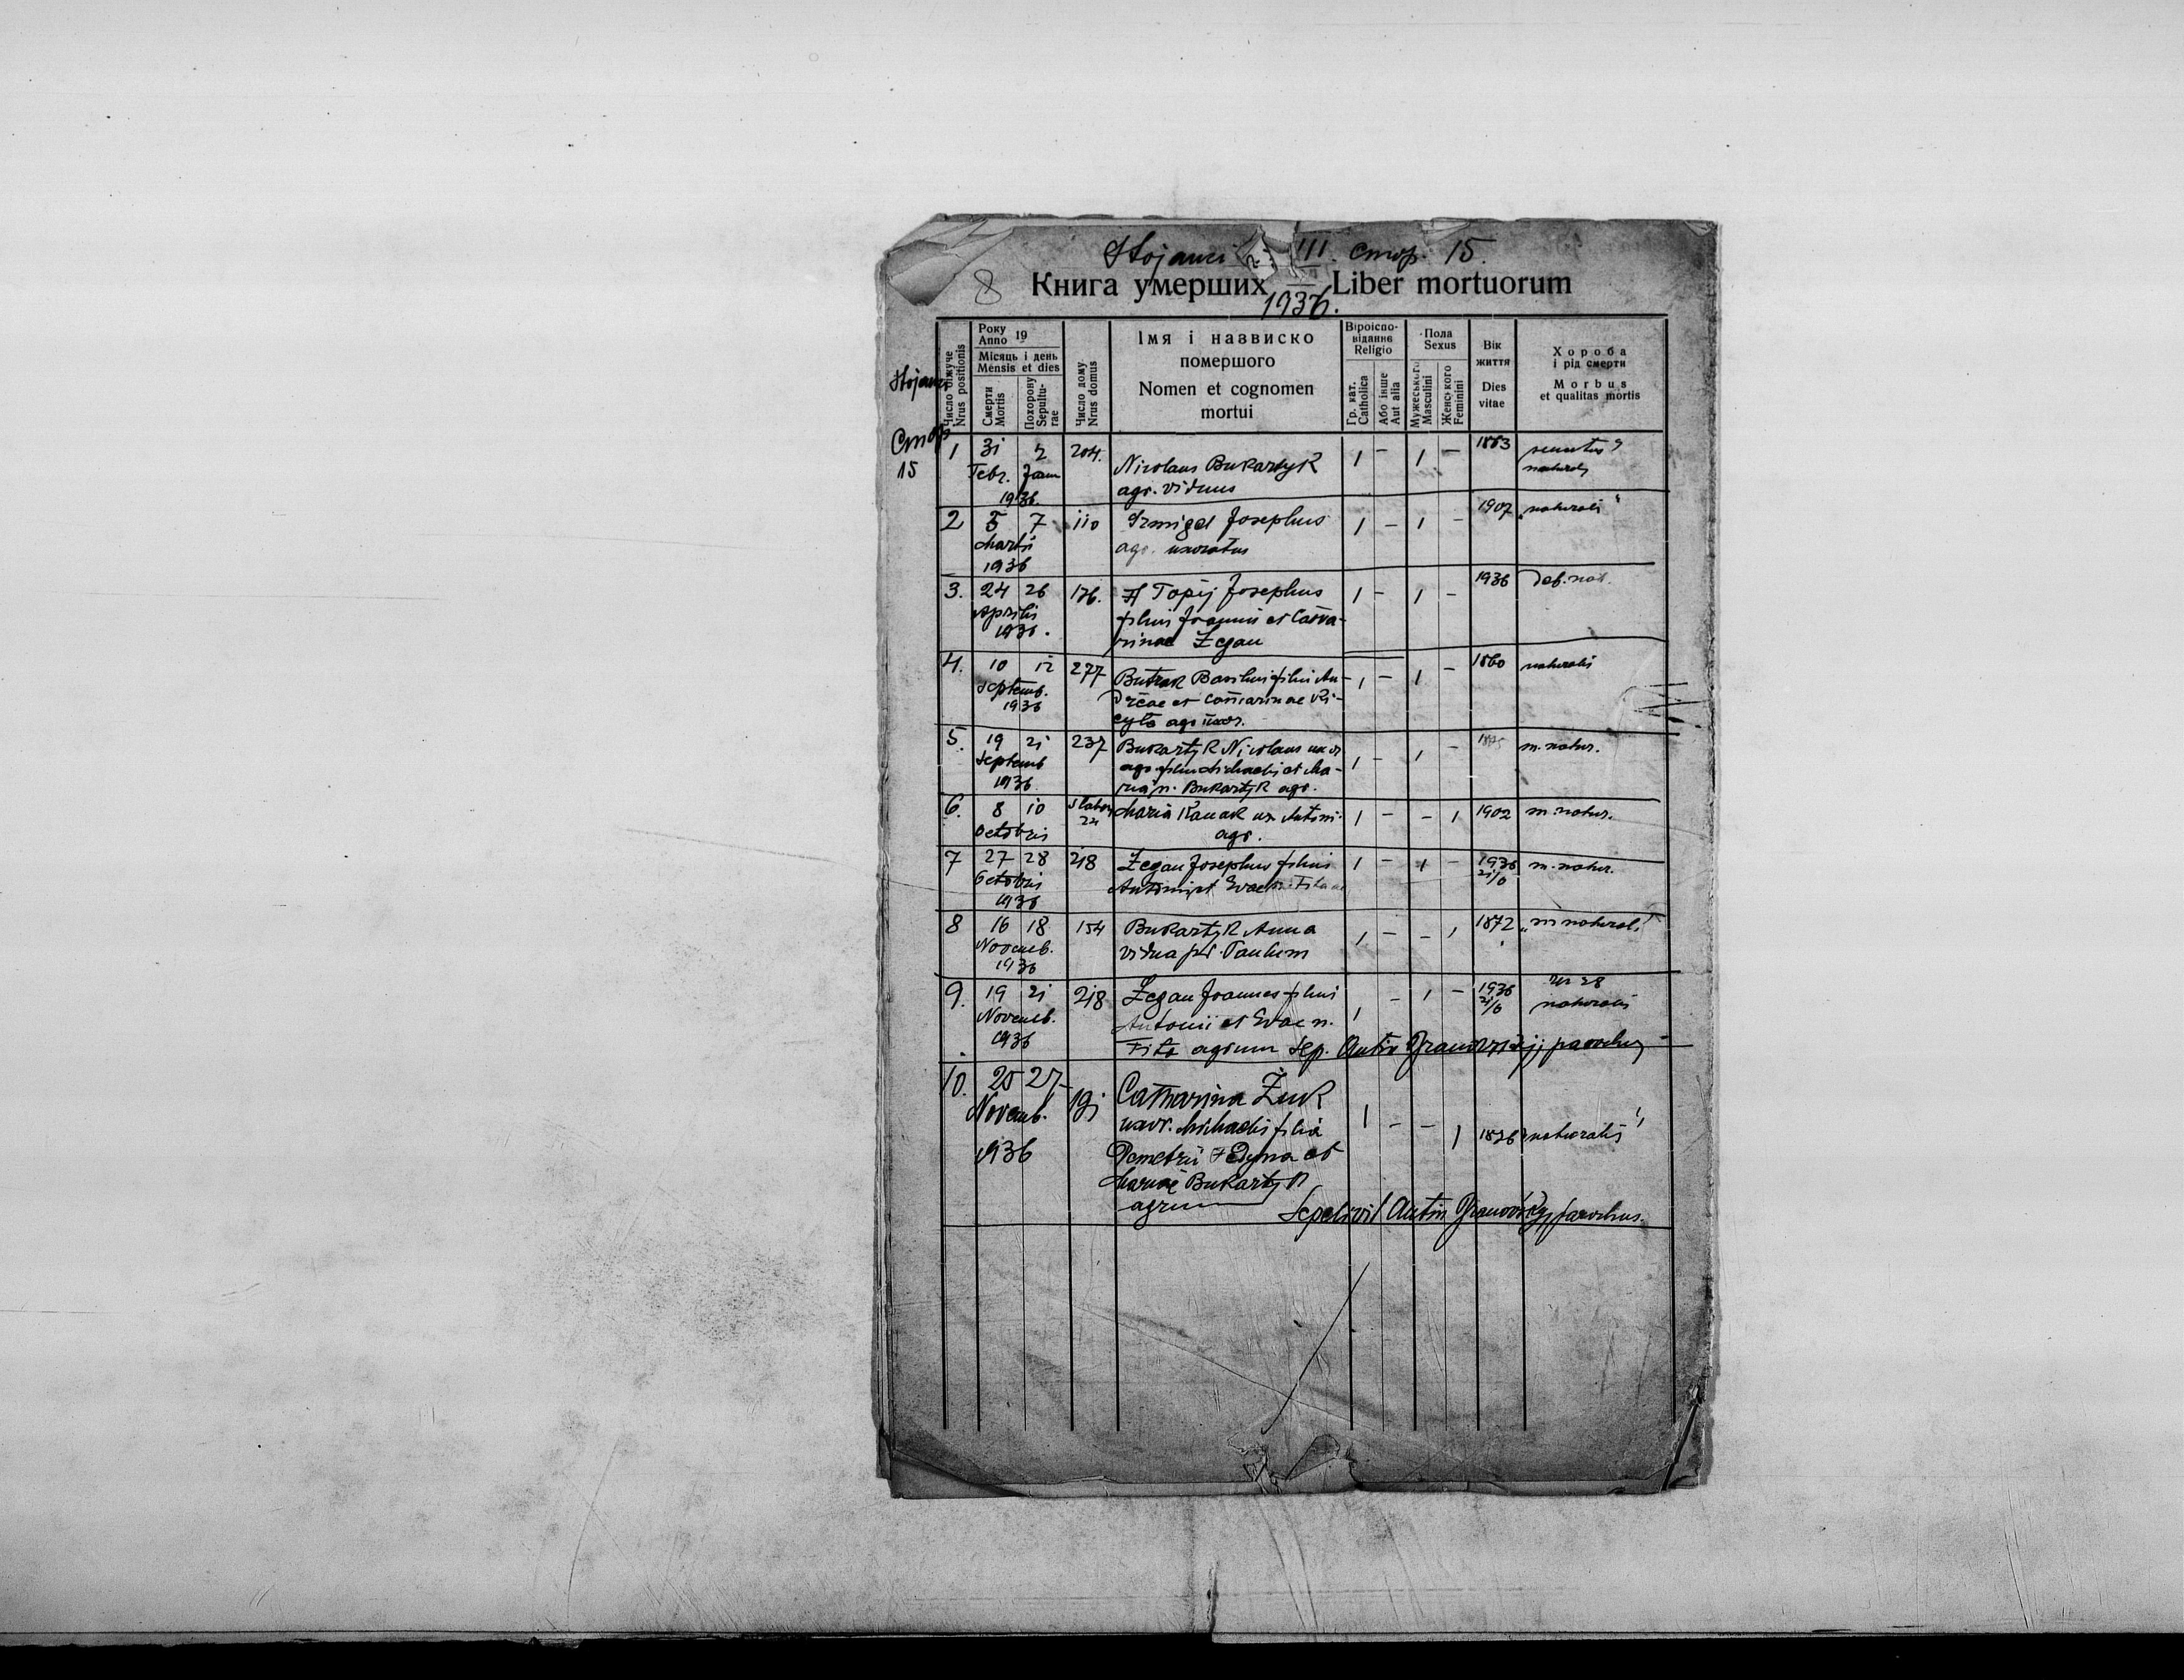 Stojanci III. стор. 15.
8 Книга умерших — Liber mortuorum
1936.
Число біжуче Nrus positionis
Року Anno 19
Місяць і день Mensis et dies
Смерти Mortis
Похорону Sepulturae
Число дому Nrus domus
Імя і назвиско помершого
Nomen et cognomen mortui
Віроісповідання Religio
Гр. кат. Catholica
Або інше Aut alia
Пола Sexus
Мужеського Masculini
Женського Feminini
Вік життя Dies vitae
Хороба і рід смерти
Morbus et qualitas mortis
Стор 15
1 31 2 204. 1 — 1 — 1883
Febr. Jan Nicolaus Bukartyk
1936. agr. viduus
2 5 7 110 Josephus 1 — 1 — 1907 "naturalis"
Martii agr. uxoratus
1936
3. 24 26 176. Topij Josephus 1 — 1 — 1936 deb. nat.
Aprilis filius Joannis et Catha-
1936. rinae Zegan
4. 10 12 277 Butrak Basilius filius An- 1 — 1 — 1860 naturalis
Septemb. dreae et Catharinae
1936 agr. uxor.
5. 19 21 237 Bukartyk Nicolaus uxor 1 — 1 — m. natur.
Septemb agr. filius Michaelis et Ma-
1936 ria n. Bukartyk agr.
6. 8 10 24 Maria ux. Antoni 1 — — 1 1902 m. natur.
Octobris agr.
7 27 28 218 Zegan Josephus filius 1 — 1 — 1936 m. natur.
Octobris Antonii et Evae n. Fita 21/6
1936
8 16 18 154 Bukartyk Anna 1 — — 1 1872 "m natural."
Novemb. vidua p. Paulum
1936
9. 19 21 218 Zegan Joannes filius 1 — 1 — 1936
Novemb. Antonii et Evae n. 21/6 naturalis
1936 Fita agrum Sep. Antin parochus
10. 25 27 191 Catharina Żuk 1 — — 1 naturalis"
Novemb. uxor. Michaelis filia
1936 Demetrii et
Mariae Bukartyk
agrum
Sepelivit Antin parochus.